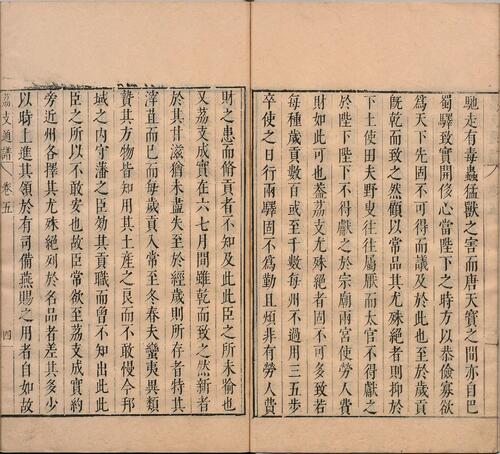 馳走有毒蟲猛獸之害而唐天寶之間亦自巴
蜀驛致實開侈心當陛下之時方以恭儉寡欲
為天下先固不可得而議及於此也至於歲貢
既乾而致之然顧以常品其尤殊絕者則抑於
下土使田夫野叟往往屬厭而太官不得獻之
於陛下陛下不得獻之於宗廟兩宮使勞人費
財如此可也蓋荔支尤殊絕者固不可多致若
每種歲貢數百或至千數每州不過用三五步
卒使之日行兩驛固不為勤且煩非有勞人費
財之患而脩貢者不知及此此臣之所未喻也
又荔支成實在六七月間雖乾而致之然新者
於其甘滋猶未盡失至於經歲則所存者特其
滓苴而已而每歲貢入常至冬春夫蠻夷異類
贄其方物皆知用其土產之良而不敢慢今邦
域之內守藩之臣効其貢職而曾不知出此此
臣之所以不敢安也故臣常欲至荔支成實約
旁近州各擇其尤殊絕列於名品者差其多少
以時上進其領於有司備燕賜之用者自如故
荔支通譜 卷五 四